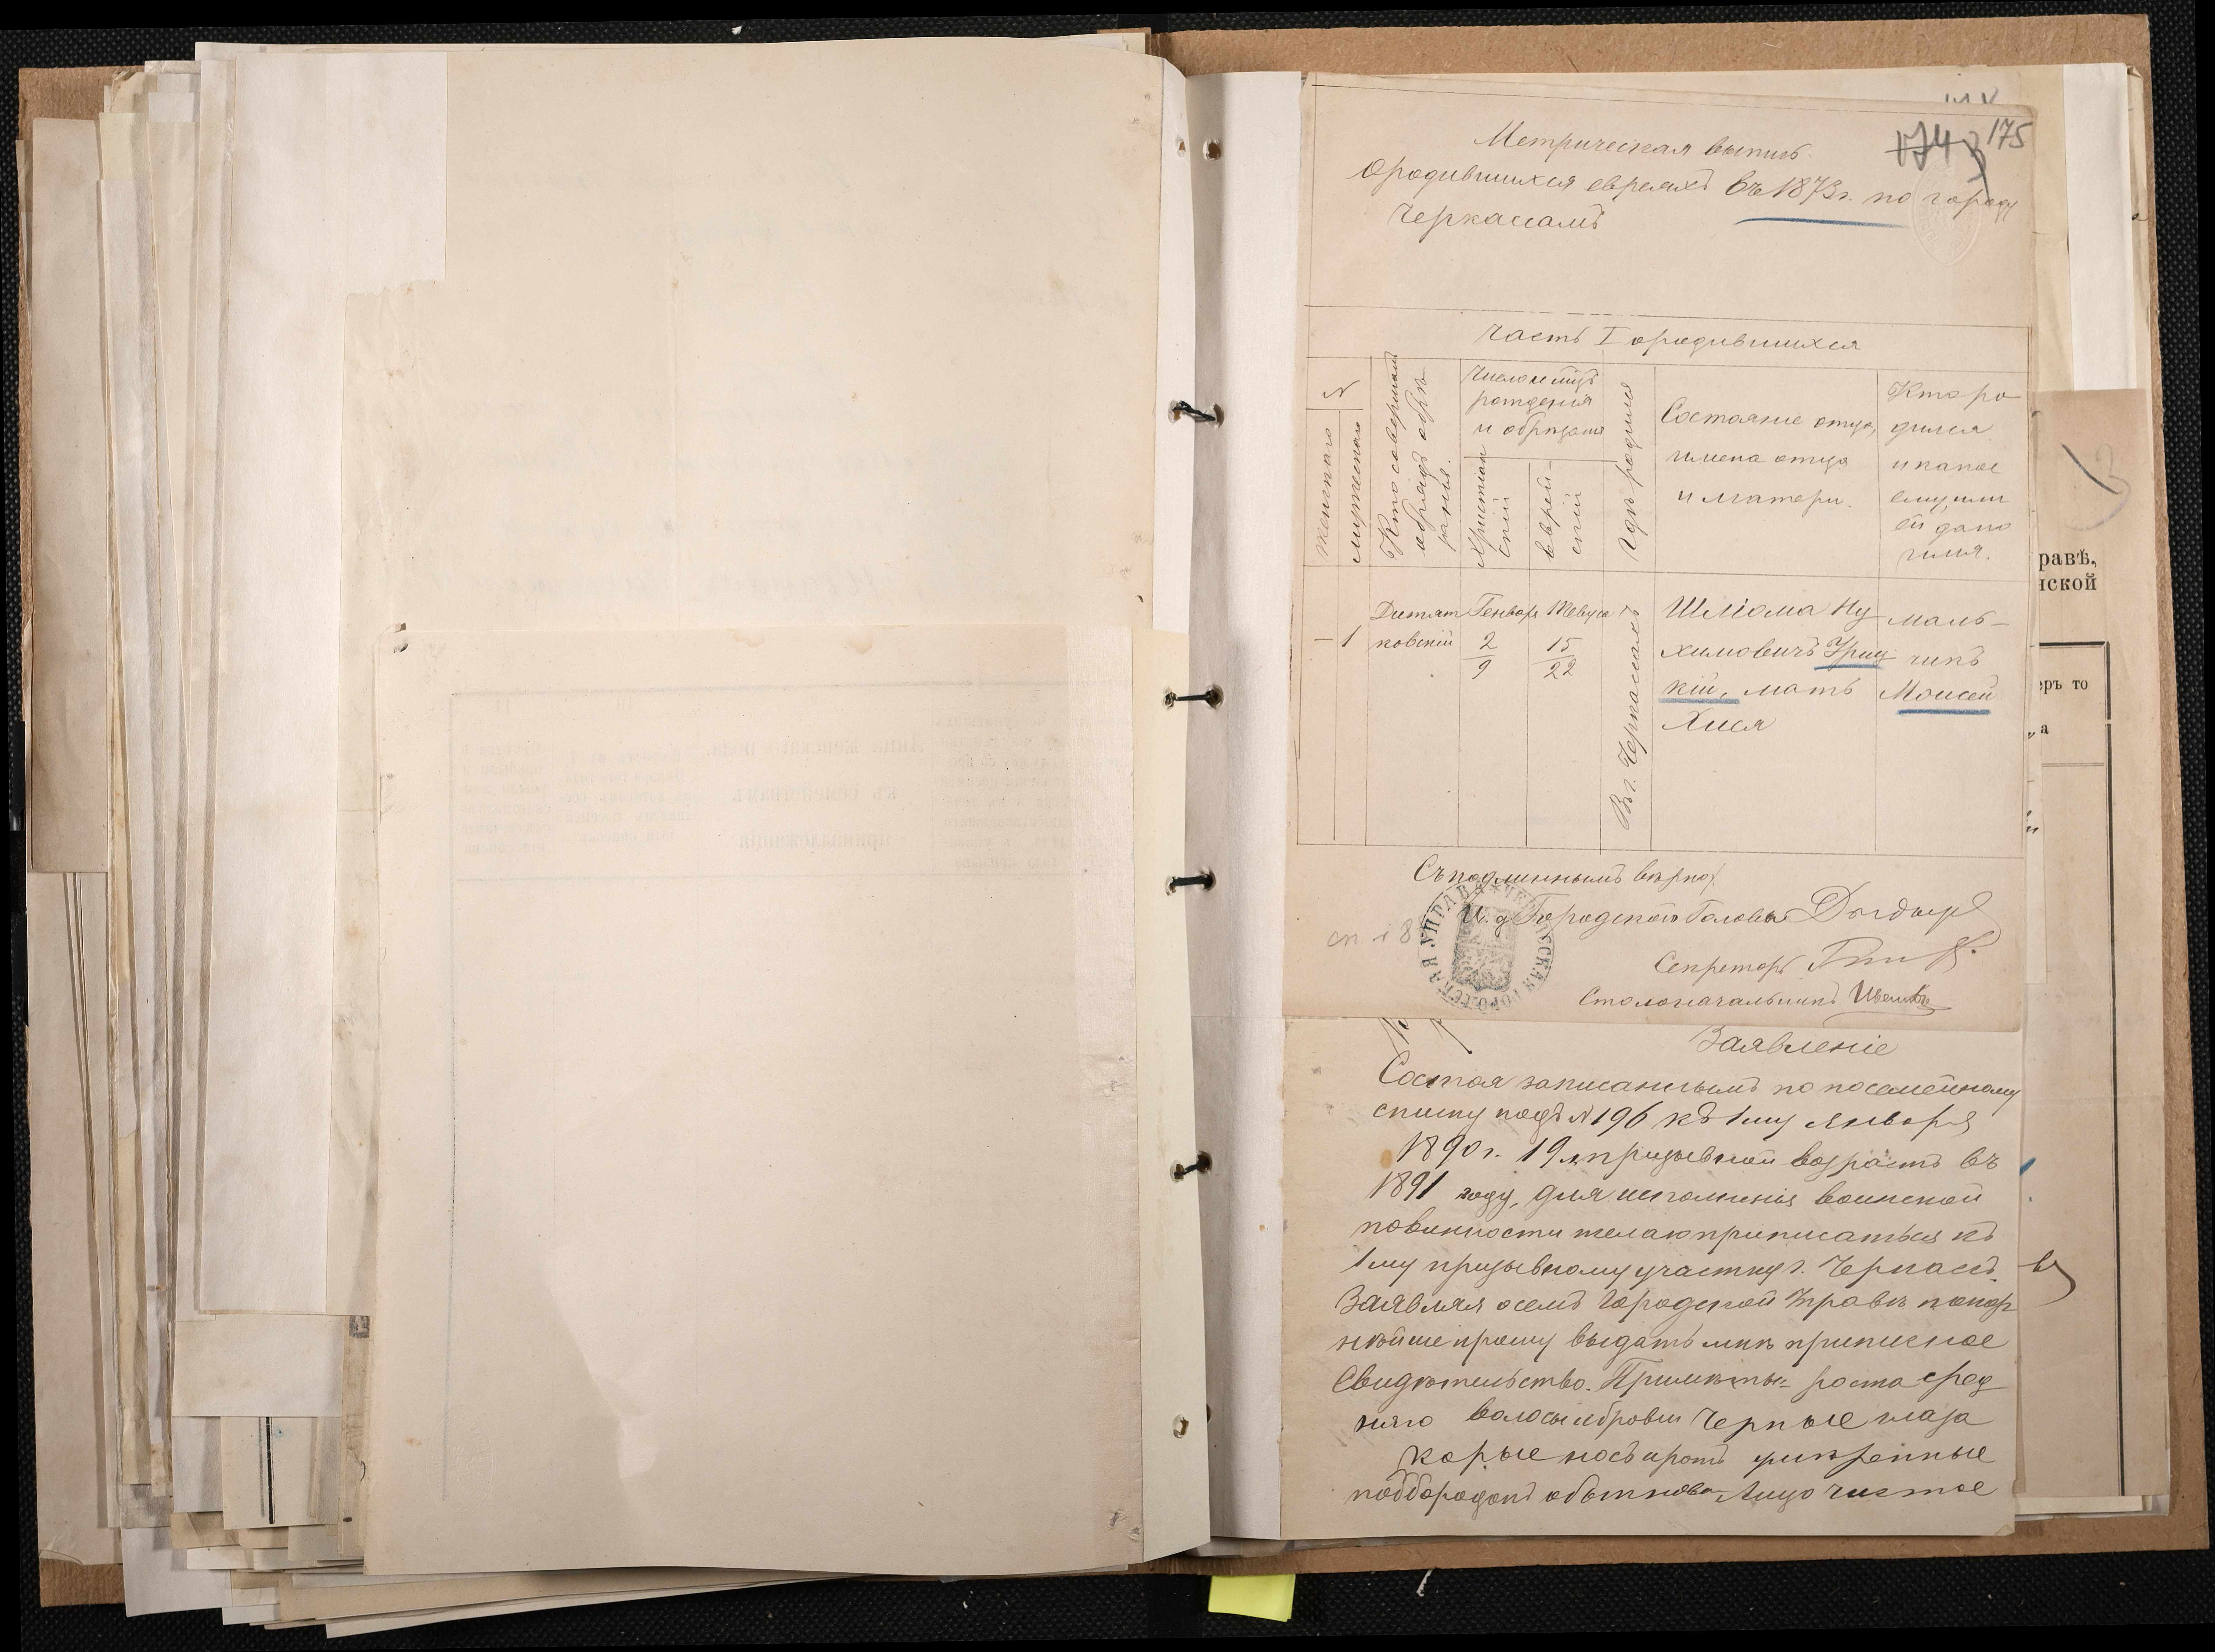 175
174
Метрическая выпись
о родившихся евреяхъ въ 1873 г. по городу
Черкассамъ
Часть I о родившихся
N
женскаго
мужескаго
Кто совершалъ
обрядъ обрѣ-
занія.
Число и мѣц.
рожденія
и обрѣзанія
Христіан
скій
Еврей-
скій
Гдѣ родился
Состояніе отца,
имена отца
и матери.
Кто ро
дился
и какое
ему или
ей дано
имя.
—
1
Дитят
ковскій
Генваря
2
9
Тевуса
15
22
Въ г. Черкассахъ
Шліома Ну
химовичъ Гриц
кій, мать
Хися
маль-
чикъ
Моисей
Съ подлиннымъ вѣрно:
И. д. Городскаго Головы
Секретарь
Столоначальникъ
ЧЕРКАССКАЯ ГОРОДСКАЯ УПРАВА
Заявленіе
Состоя записаннымъ по посемейному
списку подъ N 196 къ 1му Января
1890 г. 19 л. призывной возрастъ въ
1891 году, для исполненія воинской
повинности желаю приписаться къ
1му призывному участку г. Черкасъ.
Заявляя о семъ Городской Управѣ покор
нѣйше прошу выдать мнѣ приписное
Свидѣтельство. Примѣты: роста сред
няго волосы и брови черные глаза
карые носъ и ротъ умѣренные
подбородокъ обыкнове. Лицо чистое
равѣ,
нской
еръ то
„а